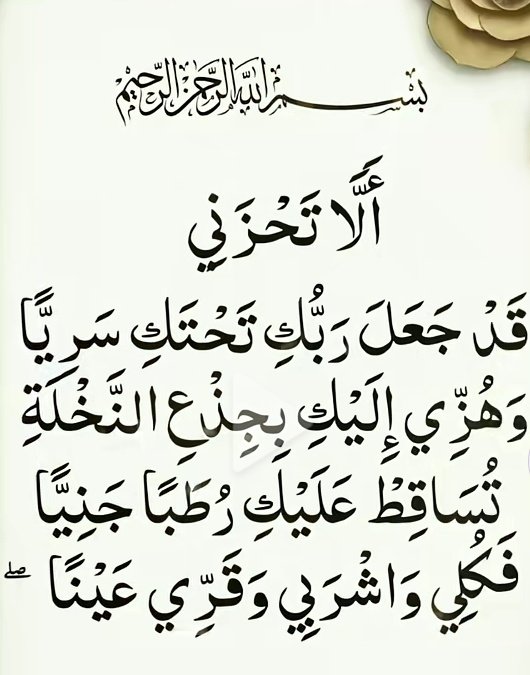 بِسْمِ اللَّهِ الرَّحْمَٰنِ الرَّحِيمِ
أَلَّا تَحْزَنِي
قَدْ جَعَلَ رَبُّكِ تَحْتَكِ سَرِيًّا
وَهُزِّي إِلَيْكِ بِجِذْعِ النَّخْلَةِ
تُسَاقِطْ عَلَيْكِ رُطَبًا جَنِيًّا
فَكُلِي وَاشْرَبِي وَقَرِّي عَيْنًا ۖ